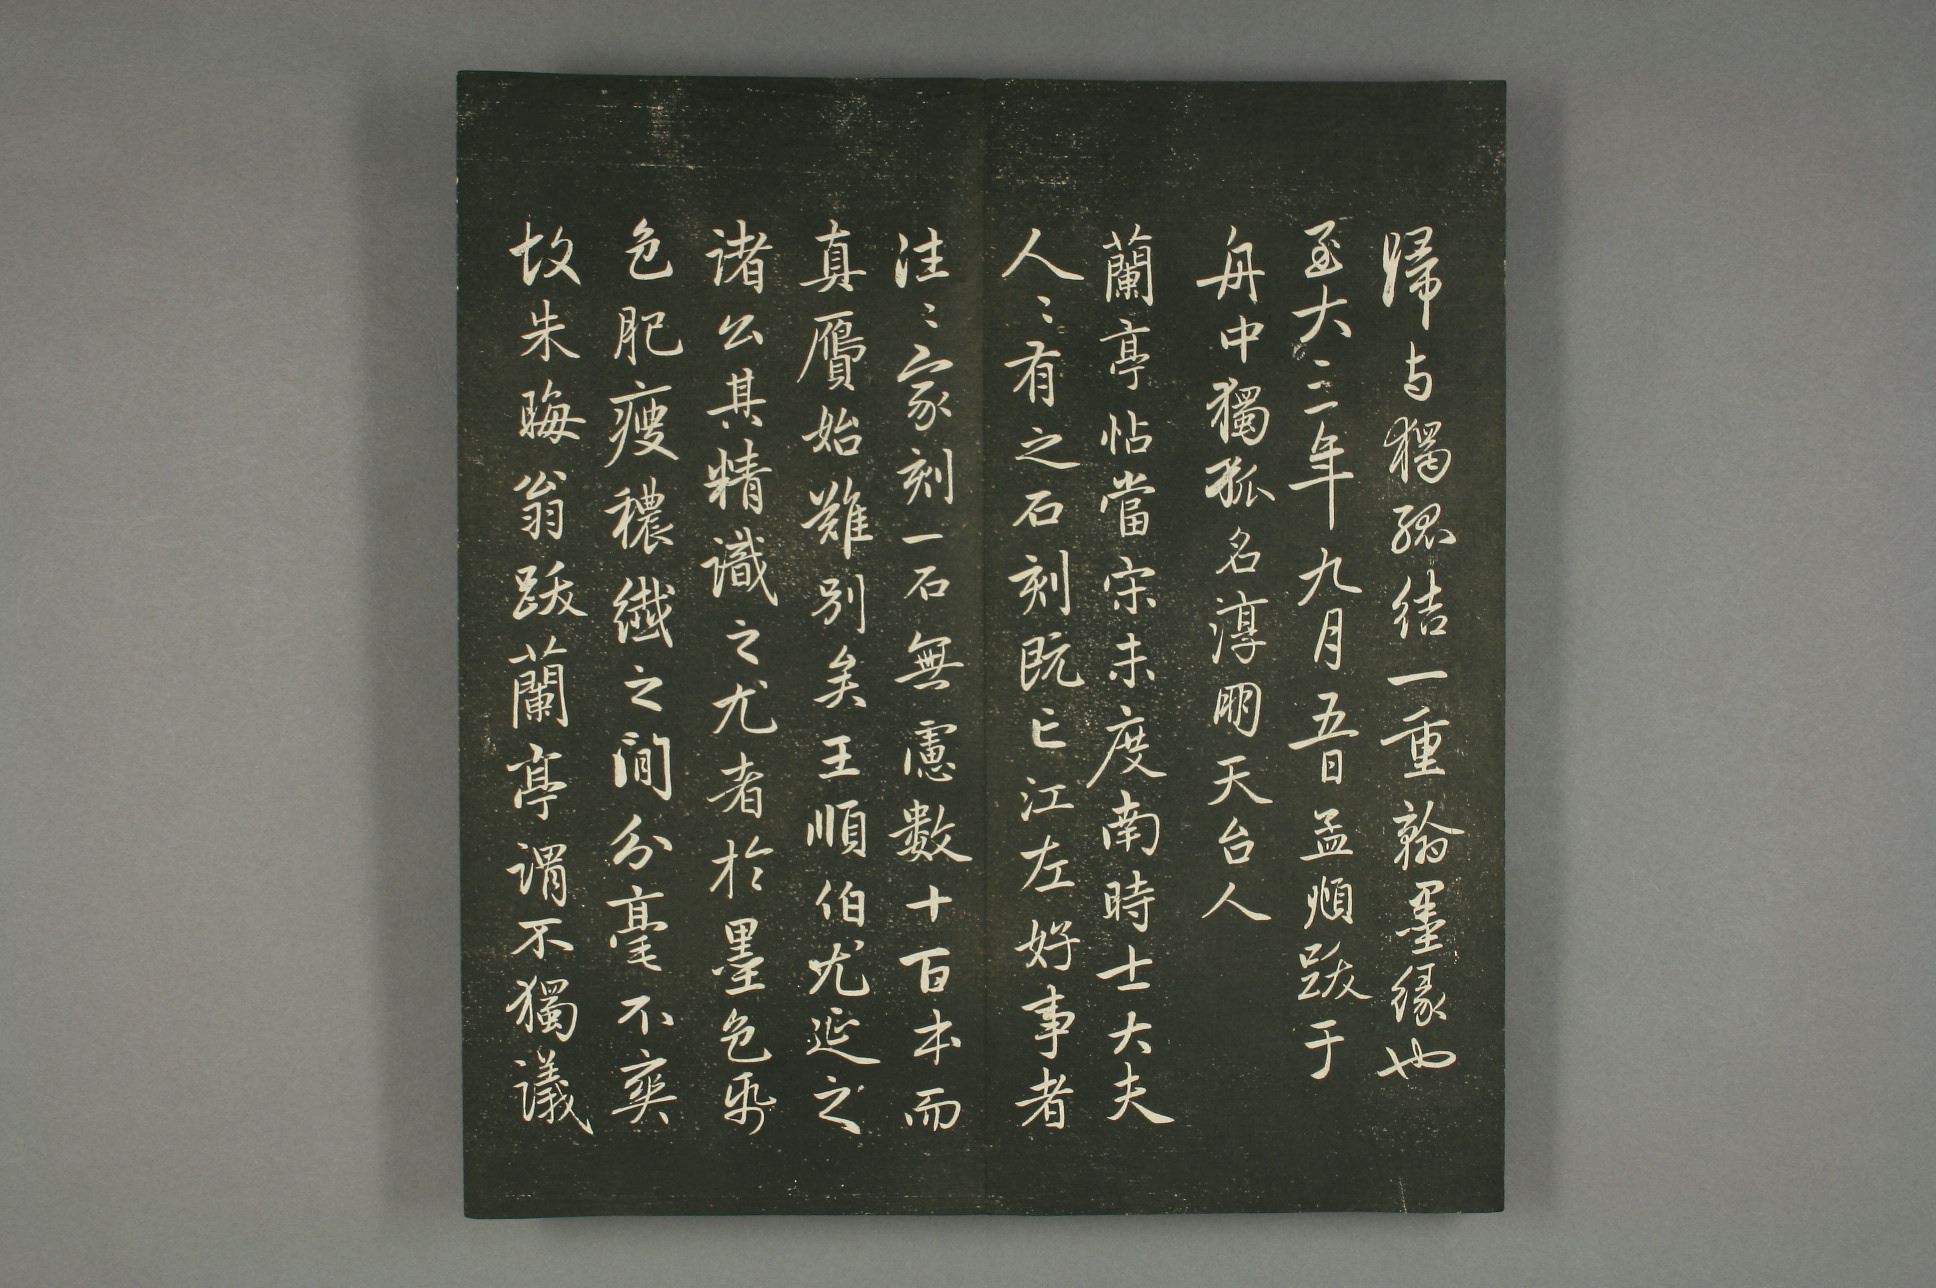 歸与獨孤結一重翰墨緣也
至大三年九月五日孟頫跋于
舟中獨孤名淳朋天台人
蘭亭帖當宋未度南時士大夫
人〻有之石刻既亡江左好事者
往〻家刻一石無慮數十百本而
真贗始難別矣王順伯尤延之
諸公其精識之尤者於墨色帋
色肥瘦穠纖之間分毫不爽
故朱晦翁跋蘭亭謂不獨議